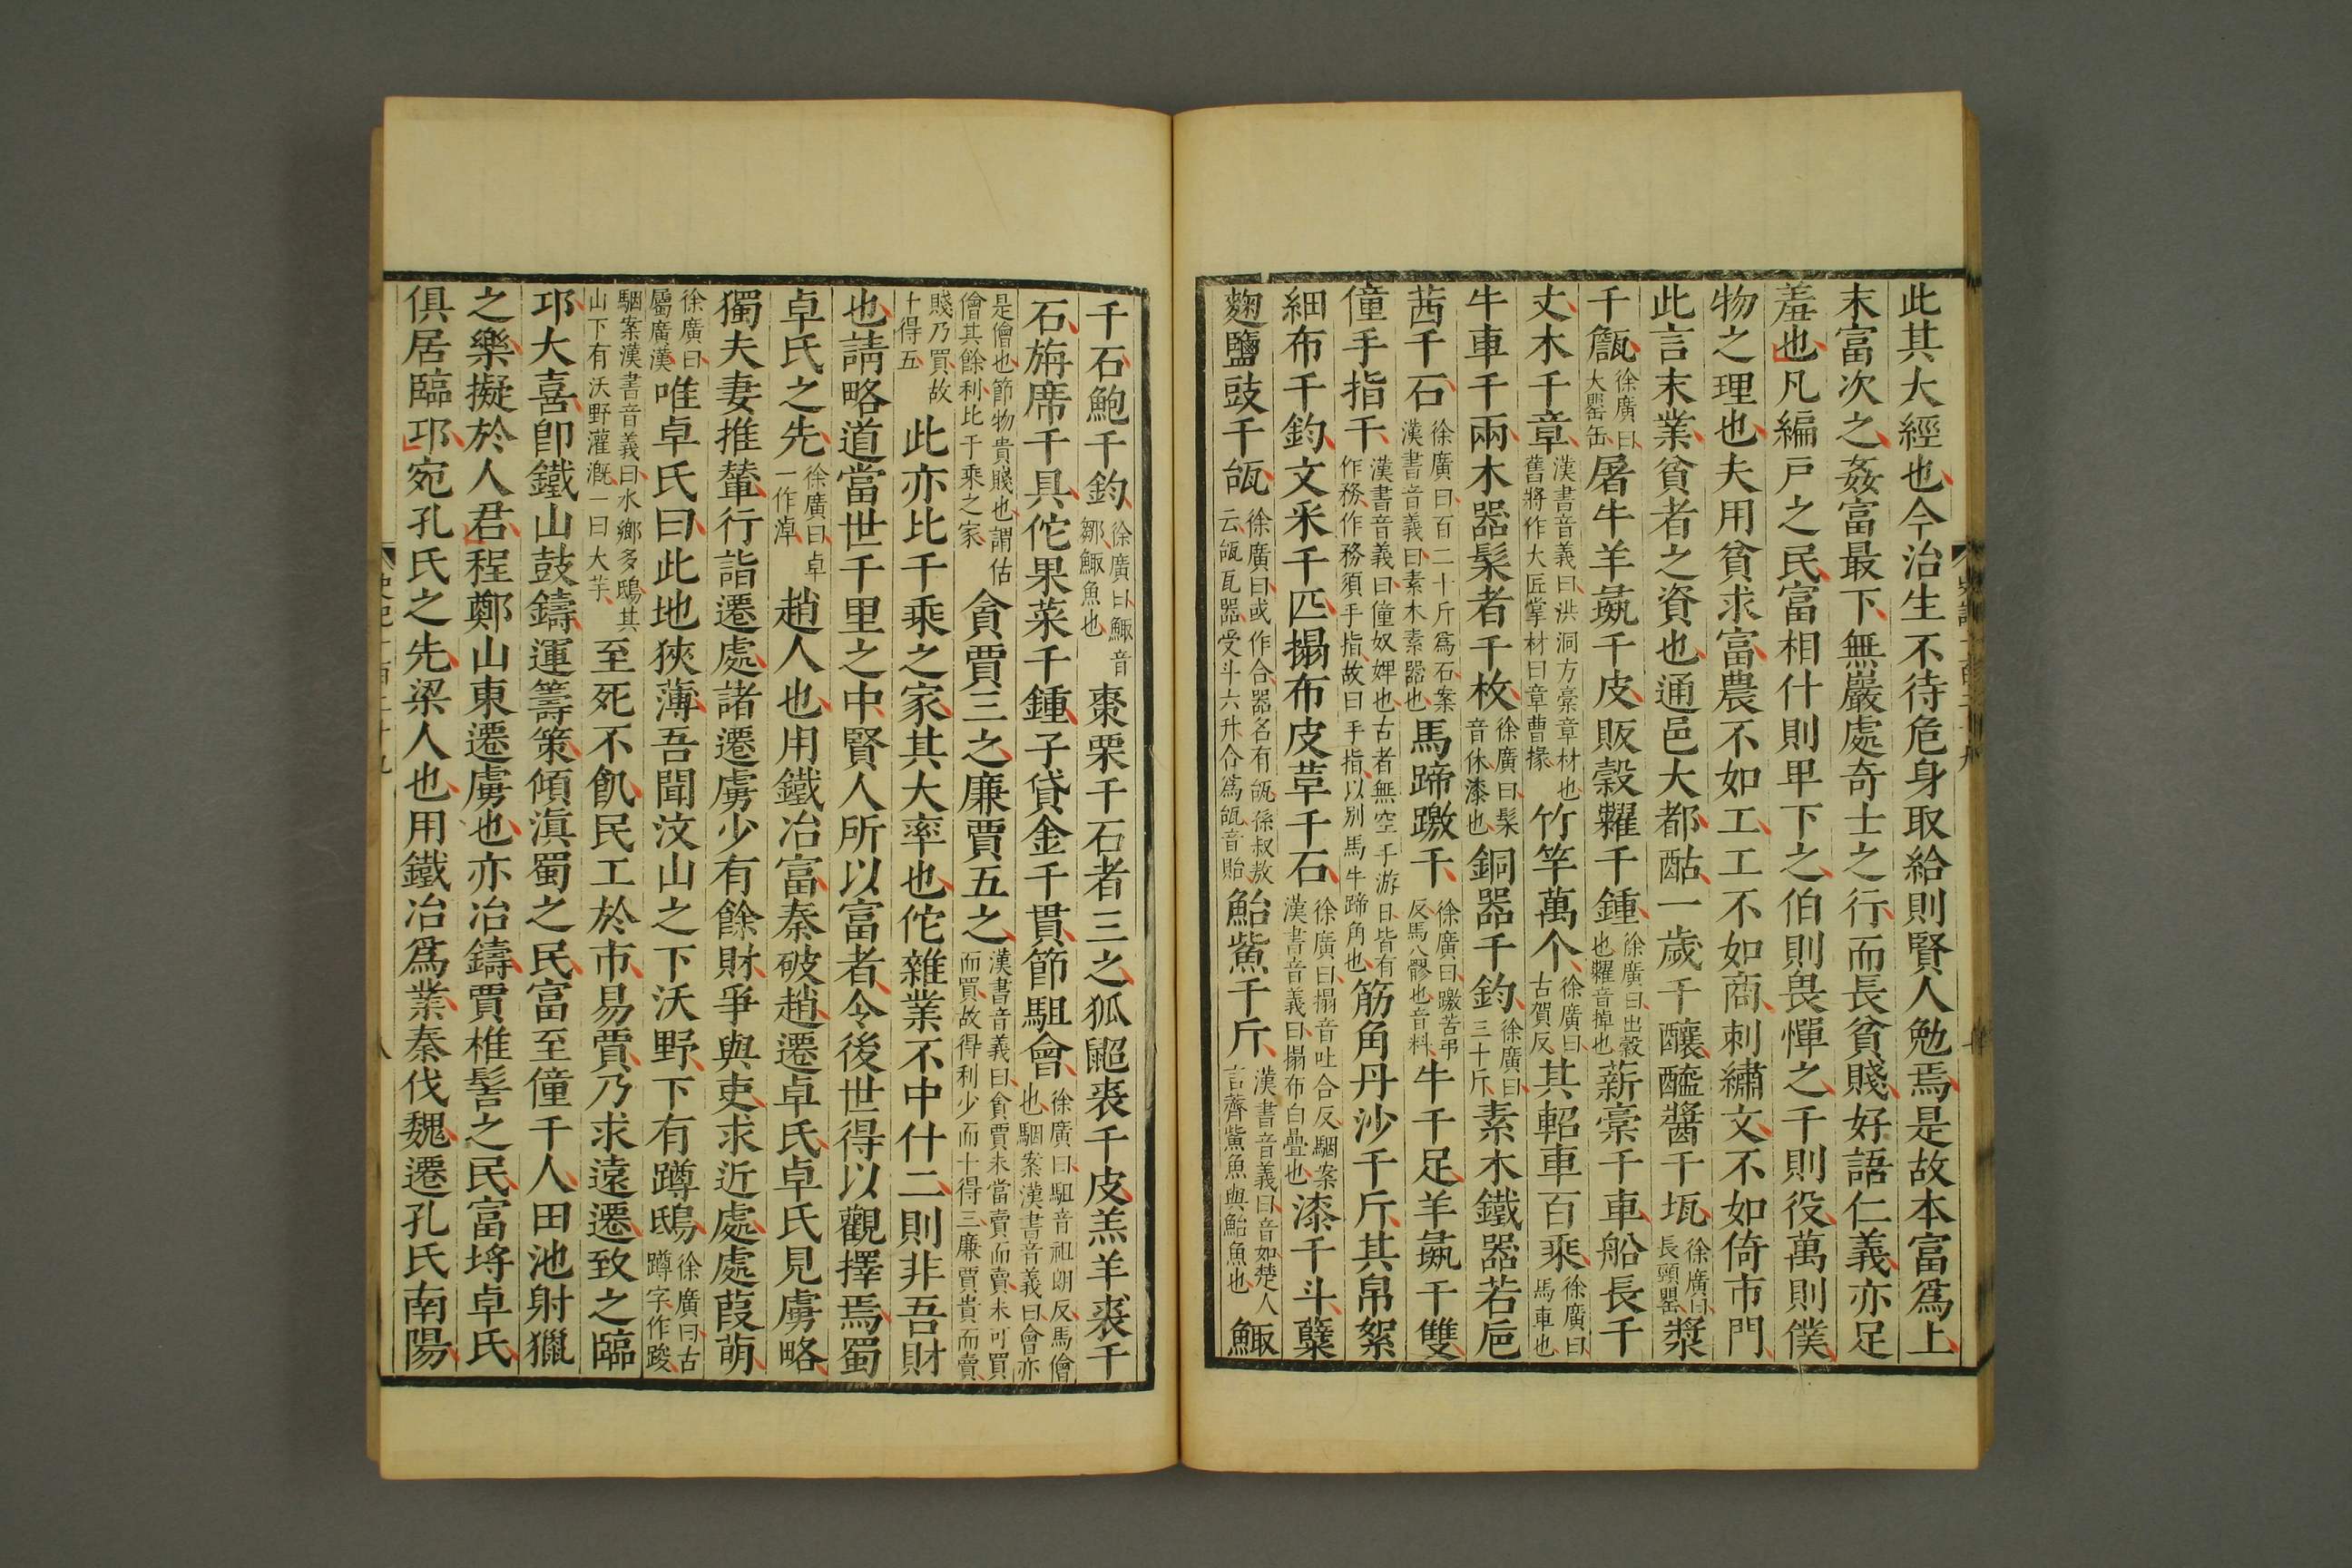 此其大經也今治生不待危身取給則賢人勉焉是故本富爲上
末富次之姦富最下無巖處奇士之行而長貧賤好語仁義亦足
羞也凡編戶之民富相什則卑下之伯則畏憚之千則役萬則僕
物之理也夫用貧求富農不如工工不如商刺繡文不如倚市門
此言末業貧者之資也通邑大都酤一歲千釀醯醬千瓨徐廣曰長頸罌漿
千甔徐廣曰大罌缶屠牛羊彘千皮販穀糶千鍾徐廣曰出穀也糶音掉也薪稾千車船長千
丈木千章漢書音義曰洪洞方稾章材也舊將作大匠掌材曰章曹掾竹竿萬个徐廣曰古賀反其軺車百乘徐廣曰馬車也
牛車千兩木器髤者千枚徐廣曰髤音休漆也銅器千鈞徐廣曰三十斤素木鐵器若巵
茜千石徐廣曰百二十斤爲石案漢書音義曰素木素器也馬蹄躈千徐廣曰躈苦弔反馬八髎也音料牛千足羊彘千雙
僮手指千漢書音義曰僮奴婢也古者無空手游日皆有作務作務須手指故曰手指以別馬牛蹄角也筋角丹沙千斤其帛絮
細布千鈞文采千匹榻布皮革千石徐廣曰榻音吐合反駰案漢書音義曰榻布白疊也漆千斗糱
麴鹽豉千瓵徐廣曰或作台器名有瓵孫叔敖云瓵瓦器受斗六升合爲瓵音貽鮐鮆千斤漢書音義曰音如楚人言薺鮆魚與鮐魚也鯫
千石鮑千鈞徐廣曰鯫音鄒鯫魚也棗栗千石者三之狐鼦裘千皮羔羊裘千
石旃席千具佗果菜千鍾子貸金千貫節駔會徐廣曰駔音祖朗反馬儈也駰案漢書音義曰會亦
是儈也節節物貴賤也謂估儈其餘利比于乘之家貪賈三之廉賈五之漢書音義曰貪賈未當賣而賣未可買而買故得利少而十得三廉賈貴而賣
賤乃買故十得五此亦比千乘之家其大率也佗雜業不中什二則非吾財
也請略道當世千里之中賢人所以富者令後世得以觀擇焉蜀
卓氏之先徐廣曰卓一作淖趙人也用鐵冶富秦破趙遷卓氏卓氏見虜略
獨夫妻推輦行詣遷處諸遷虜少有餘財爭與吏求近處處葭萌
徐廣曰屬廣漢唯卓氏曰此地狹薄吾聞汶山之下沃野下有蹲鴟徐廣曰古蹲字作踆
駰案漢書音義曰水鄉多鴟其山下有沃野灌漑一曰大芋至死不飢民工於市易賈乃求遠遷致之臨
邛大喜卽鐵山鼓鑄運籌策傾滇蜀之民富至僮千人田池射獵
之樂擬於人君程鄭山東遷虜也亦冶鑄賈椎髻之民富埒卓氏
俱居臨邛宛孔氏之先梁人也用鐵冶爲業秦伐魏遷孔氏南陽